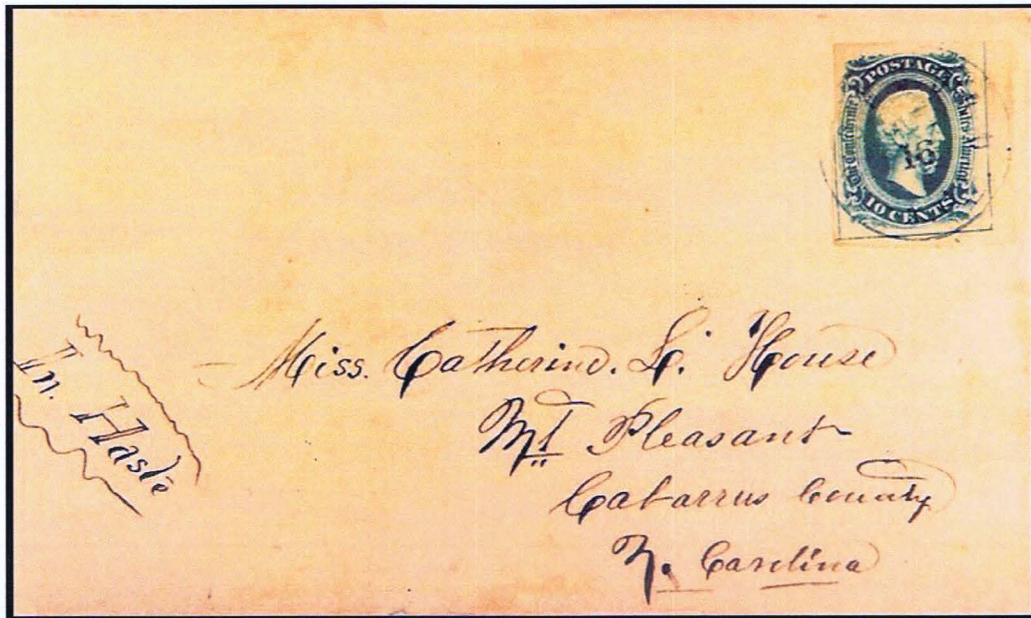 POSTAGE
The Confederate States America
16
10 CENTS
In. Haste
Miss. Catherine. L. House
Mt Pleasant
Cabarrus County
N. Carolina